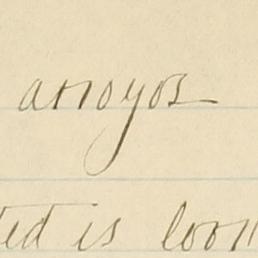 arroyos
ted is loon